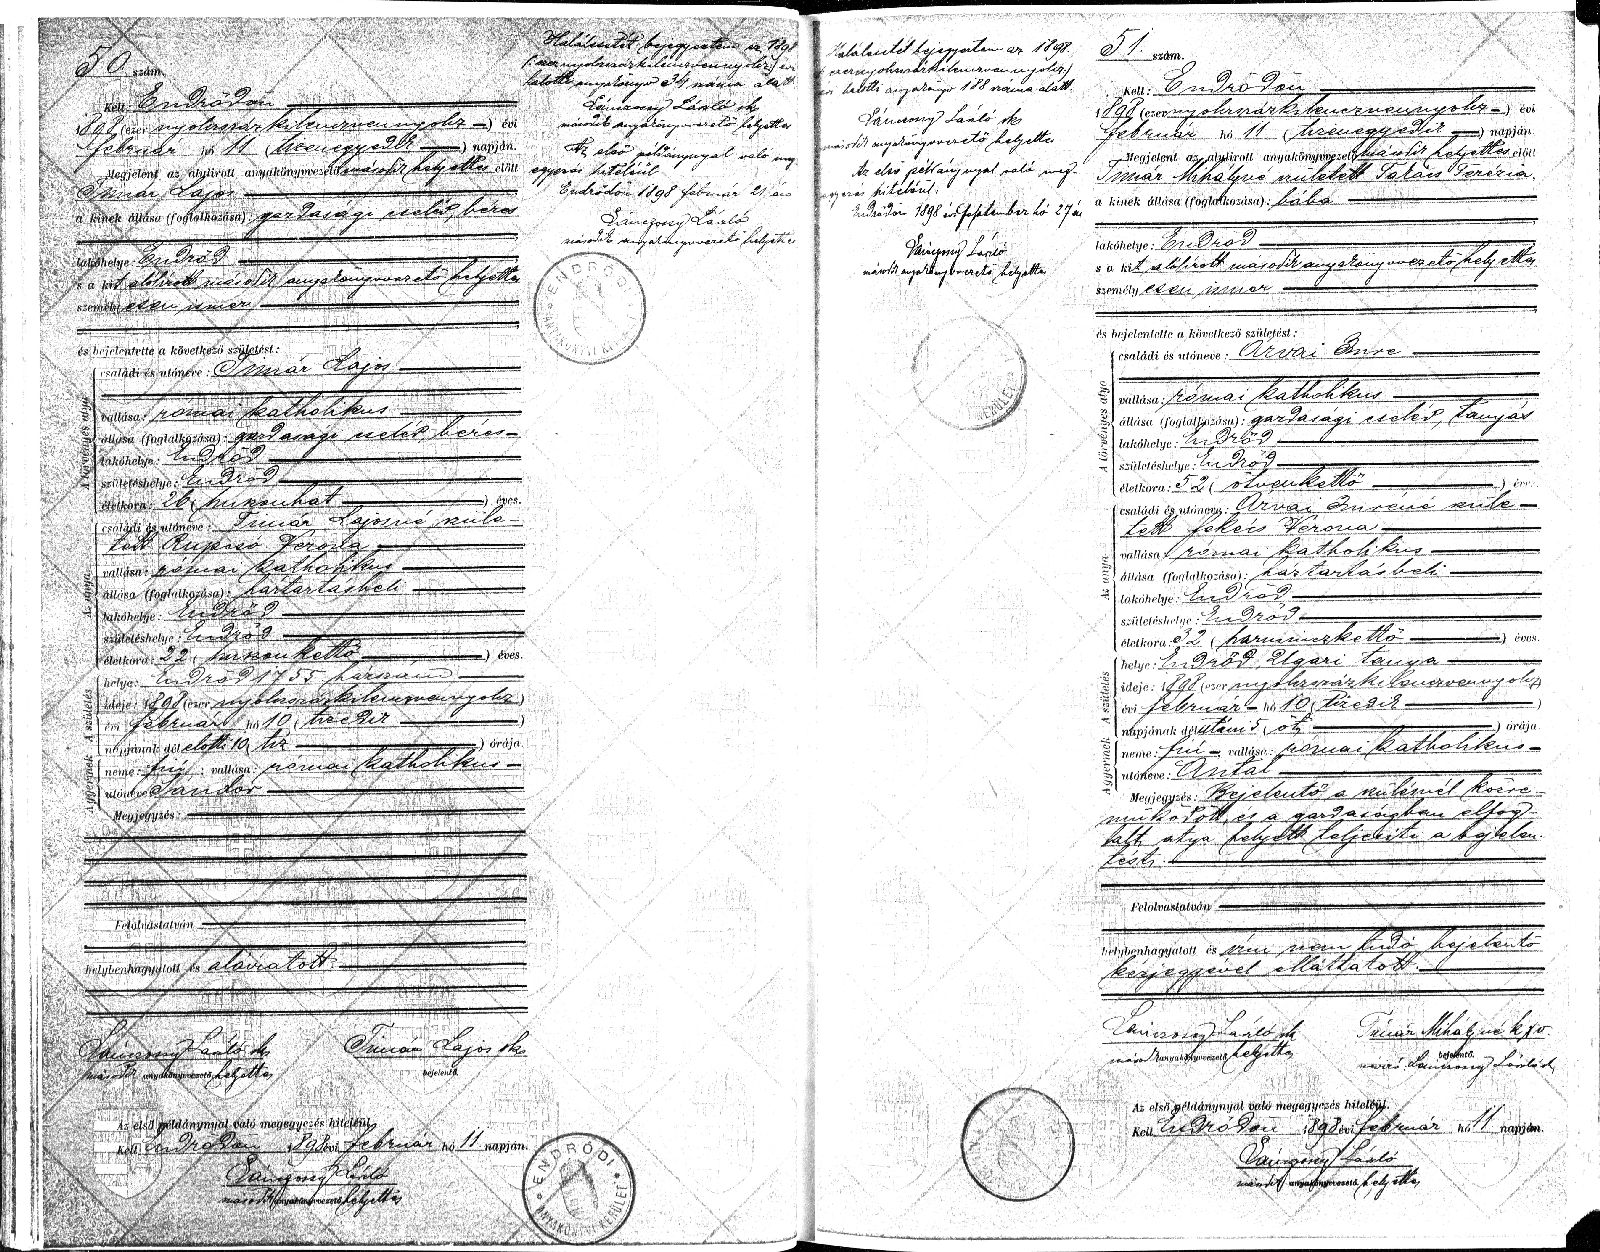 50. szám.
Kelt Endrődön
1898 (ezer nyolcszázkilencvennyolcz) évi
február hó 11 (tizenegyedik) napján.
Megjelent az alulirott anyakönyvvezető második helyettes előtt
Timár Lajos
a kinek állása (foglalkozása): gazdasági cseléd, béres
lakóhelye: Endrőd
s a kit alólirott második anyakönyvvezető helyettes
személyesen ismer
és bejelentette a következő születést:
A törvényes atya
családi és utóneve: Timár Lajos
vallása: római katholikus
állása (foglalkozása): gazdasági cseléd béres
lakóhelye: Endrőd
születéshelye: Endrőd
életkora: 26 (huszonhat) éves.
Az anya
családi és utóneve: Timár Lajosné szüle-
tett Verona
vallása: római katholikus
állása (foglalkozása): háztartásbeli
lakóhelye: Endrőd
születéshelye: Endrőd
életkora: 22 (huszonkettő) éves.
A születés
helye: Endrőd 1755 házszám
ideje: 1898 (ezer nyolcszázkilencvennyolcz)
évi február hó 10 (tizedik)
napjának dél előtti 10 (tíz) órája.
A gyermek
neme: fiú; vallása: római katholikus
utóneve Sándor
Megjegyzés:
Felolvastatván
helybenhagyatott és aláiratott.
Lánczony László sk
második anyakönyvvezető helyettes
Timár Lajos sk
bejelentő.
Az első példánynyal való megegyezés hiteléül.
Kelt Endrődön 1898 évi február hó 11 napján.
Lánczony László
második anyakönyvvezető helyettes
ENDRŐDI ANYAKÖNYVI KERÜLET
Halálesetét bejegyeztem az 1898
(ezernyolcszázkilencvennyolcz) évi
halotti anyakönyv 34 száma alatt
Lánczony László sk
második anyakönyvvezető helyettes
Az első példánynyal való meg
egyezés hiteléül
Endrődön 1898 február 21 én
Lánczony László
második anyakönyvvezető helyettes
ENDRŐDI ANYAKÖNYVI KERÜLET
Halálesetét bejegyeztem az 1898.
(ezernyolcszázkilencvennyolcz)
évi halotti anyakönyv 188 száma alatt.
Lánczony László sk
második anyakönyvvezető helyettes
Az első példánynyal való meg-
egyezés hiteléül.
Endrődön 1898 évi szeptember hó 27 én
Lánczony László
második anyakönyvvezető helyettes
KERÜLET
51. szám.
Kelt: Endrődön
1898 (ezer nyolcszázkilencvennyolcz) évi
február hó 11 (tizenegyedik) napján.
Megjelent az alulirott anyakönyvvezető második helyettes előtt
Timár Mihályné született Takács Terézia.
a kinek állása (foglalkozása): bába
lakóhelye: Endrőd
s a kit alólirott második anyakönyvvezető helyettes
személyesen ismer
és bejelentette a következő születést:
A törvényes atya
családi és utóneve: Árvai Imre
vallása: római katholikus
állása (foglalkozása): gazdasági cseléd, tanyás
lakóhelye: Endrőd
születéshelye: Endrőd
életkora: 52 (ötvenkettő) éves.
Az anya
családi és utóneve: Árvai Imréné szüle-
tett Verona
vallása: római katholikus
állása (foglalkozása): háztartásbeli
lakóhelye: Endrőd
születéshelye: Endrőd
életkora: 32 (harminczkettő) éves.
A születés
helye: Endrőd, Ugari tanya
ideje: 1898 (ezer nyolcszázkilencvennyolcz)
évi február hó 10 (tizedik)
napjának dél utáni 5 (öt) órája.
A gyermek
neme: fiú vallása: római katholikus
utóneve: Antal
Megjegyzés: Bejelentő a szülésnél közre-
működött és a gazdaságban elfog
lalt atya helyett teljesiti a bejelen-
tést.
Felolvastatván
helybenhagyatott és irni nem tudó bejelentő
kézjegyével elláttatott.
Lánczony László sk
második anyakönyvvezető helyettes
Timár Mihályné
bejelentő.
Lánczony László sk
Az első példánynyal való megegyezés hiteléül.
Kelt Endrődön 1898 évi február hó 11 napján.
Lánczony László
második anyakönyvvezető helyettes